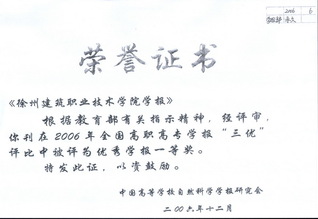 2006 6
荣誉证书
《徐州建筑职业技术学院学报》
根据教育部有关指示精神，经评审，
你刊在2006年全国高职高专学报“三优”
评比中被评为优秀学报一等奖。
特发此证，以资鼓励。
中国高等学校自然科学学报研究会
二00六年十二月